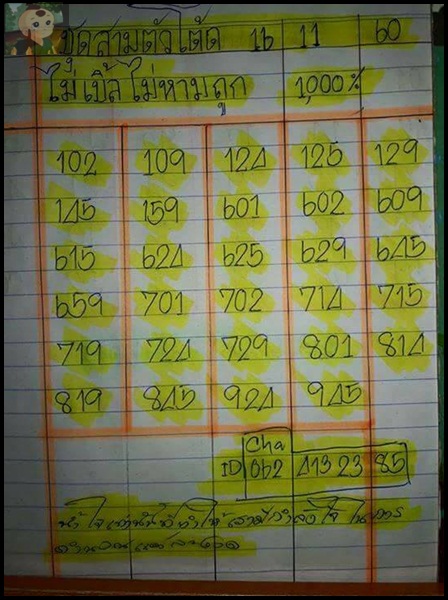 ชุดสามตัวโต๊ด 16 11 60
ไม่เบิ้ล ไม่หามถูก 1,000%
102 109 124 125 129
145 159 601 602 609
615 624 625 629 645
659 701 702 714 715
719 724 729 801 814
819 845 924 945
Cha
ID 062 413 23 85